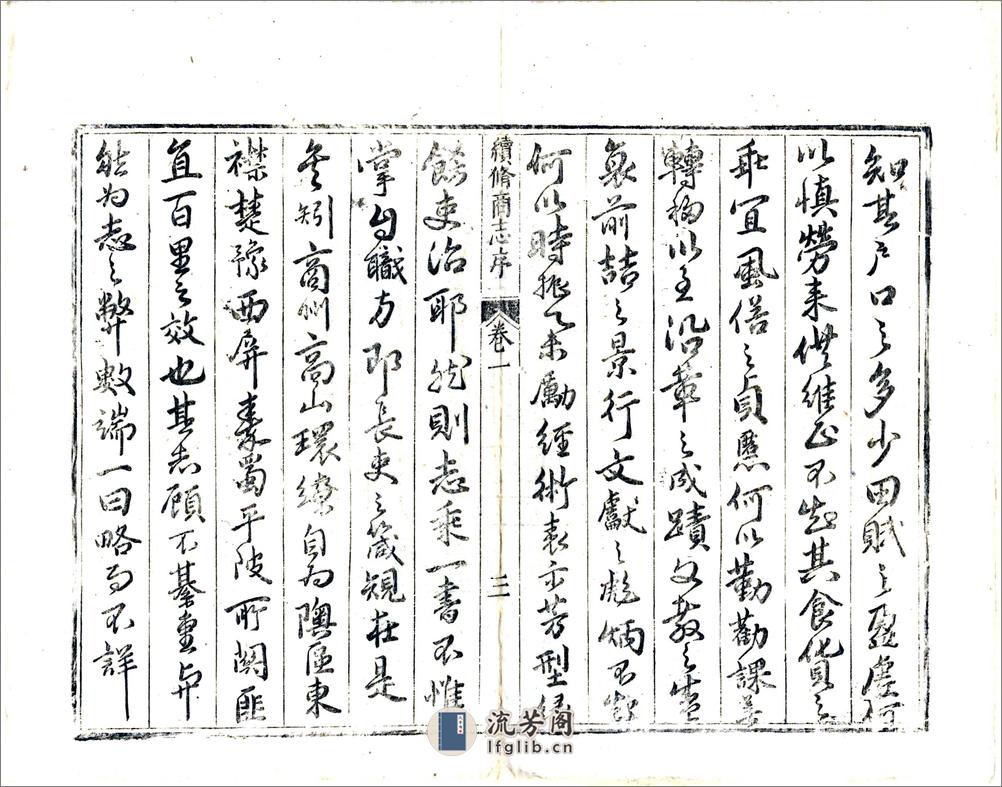 知其户口之多少田賦之盈虛何
以慎勞来供維正不知其食貨之
乖宜風俗之貞慝何以勤勸課善
轉移以至沿革之成蹟文教之盛
衰前喆之景行文獻之彪炳不知
何以時振興勵經術表示芳型緣
飾吏治耶然則志乘一書不惟
續脩商志序
卷一
三
掌自職方即長吏之箴規在是
矣矧商州高山環繚自為隩區東
襟楚豫西屏秦蜀平陂所關匪
直百里之效也其志顧不綦重歟
能為志之弊數端一曰略而不詳
流芳阁
lfglib.cn